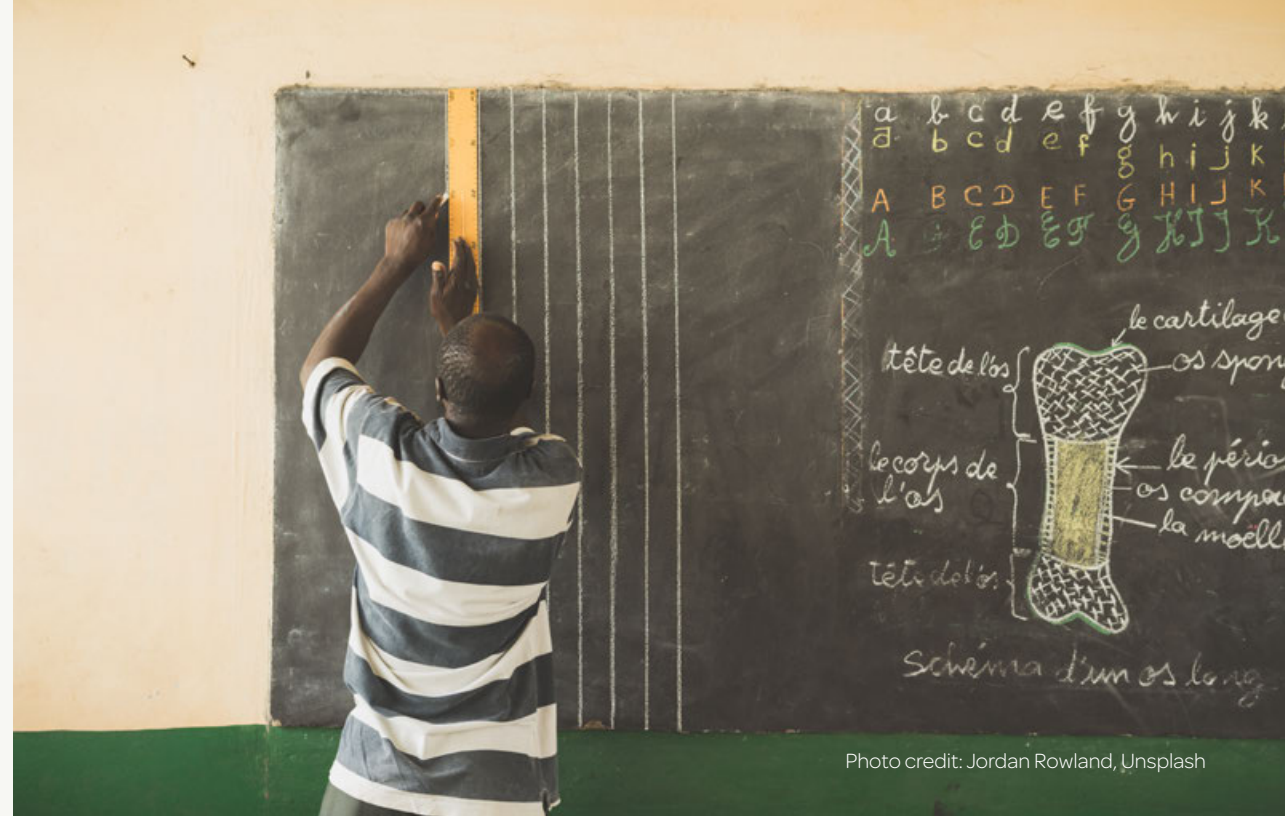 a b c d e f g h i j k
a b c d e f g h i j k
A B C D E F G H I J K
A C D E F G H I J K
le cartilage
tête de l'os
os spon
le corps de
l'os
le pério
os compa
la moëll
tête de l'os
Schéma d'un os long
Photo credit: Jordan Rowland, Unsplash